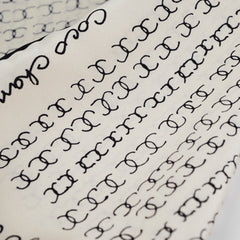 coco chan